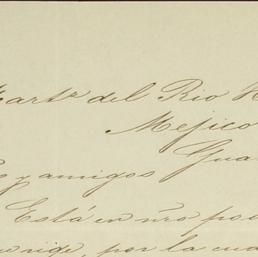 Martz del Rio H
Mejico
Gua
s y amigos
Está en nro po
rige, por la cua